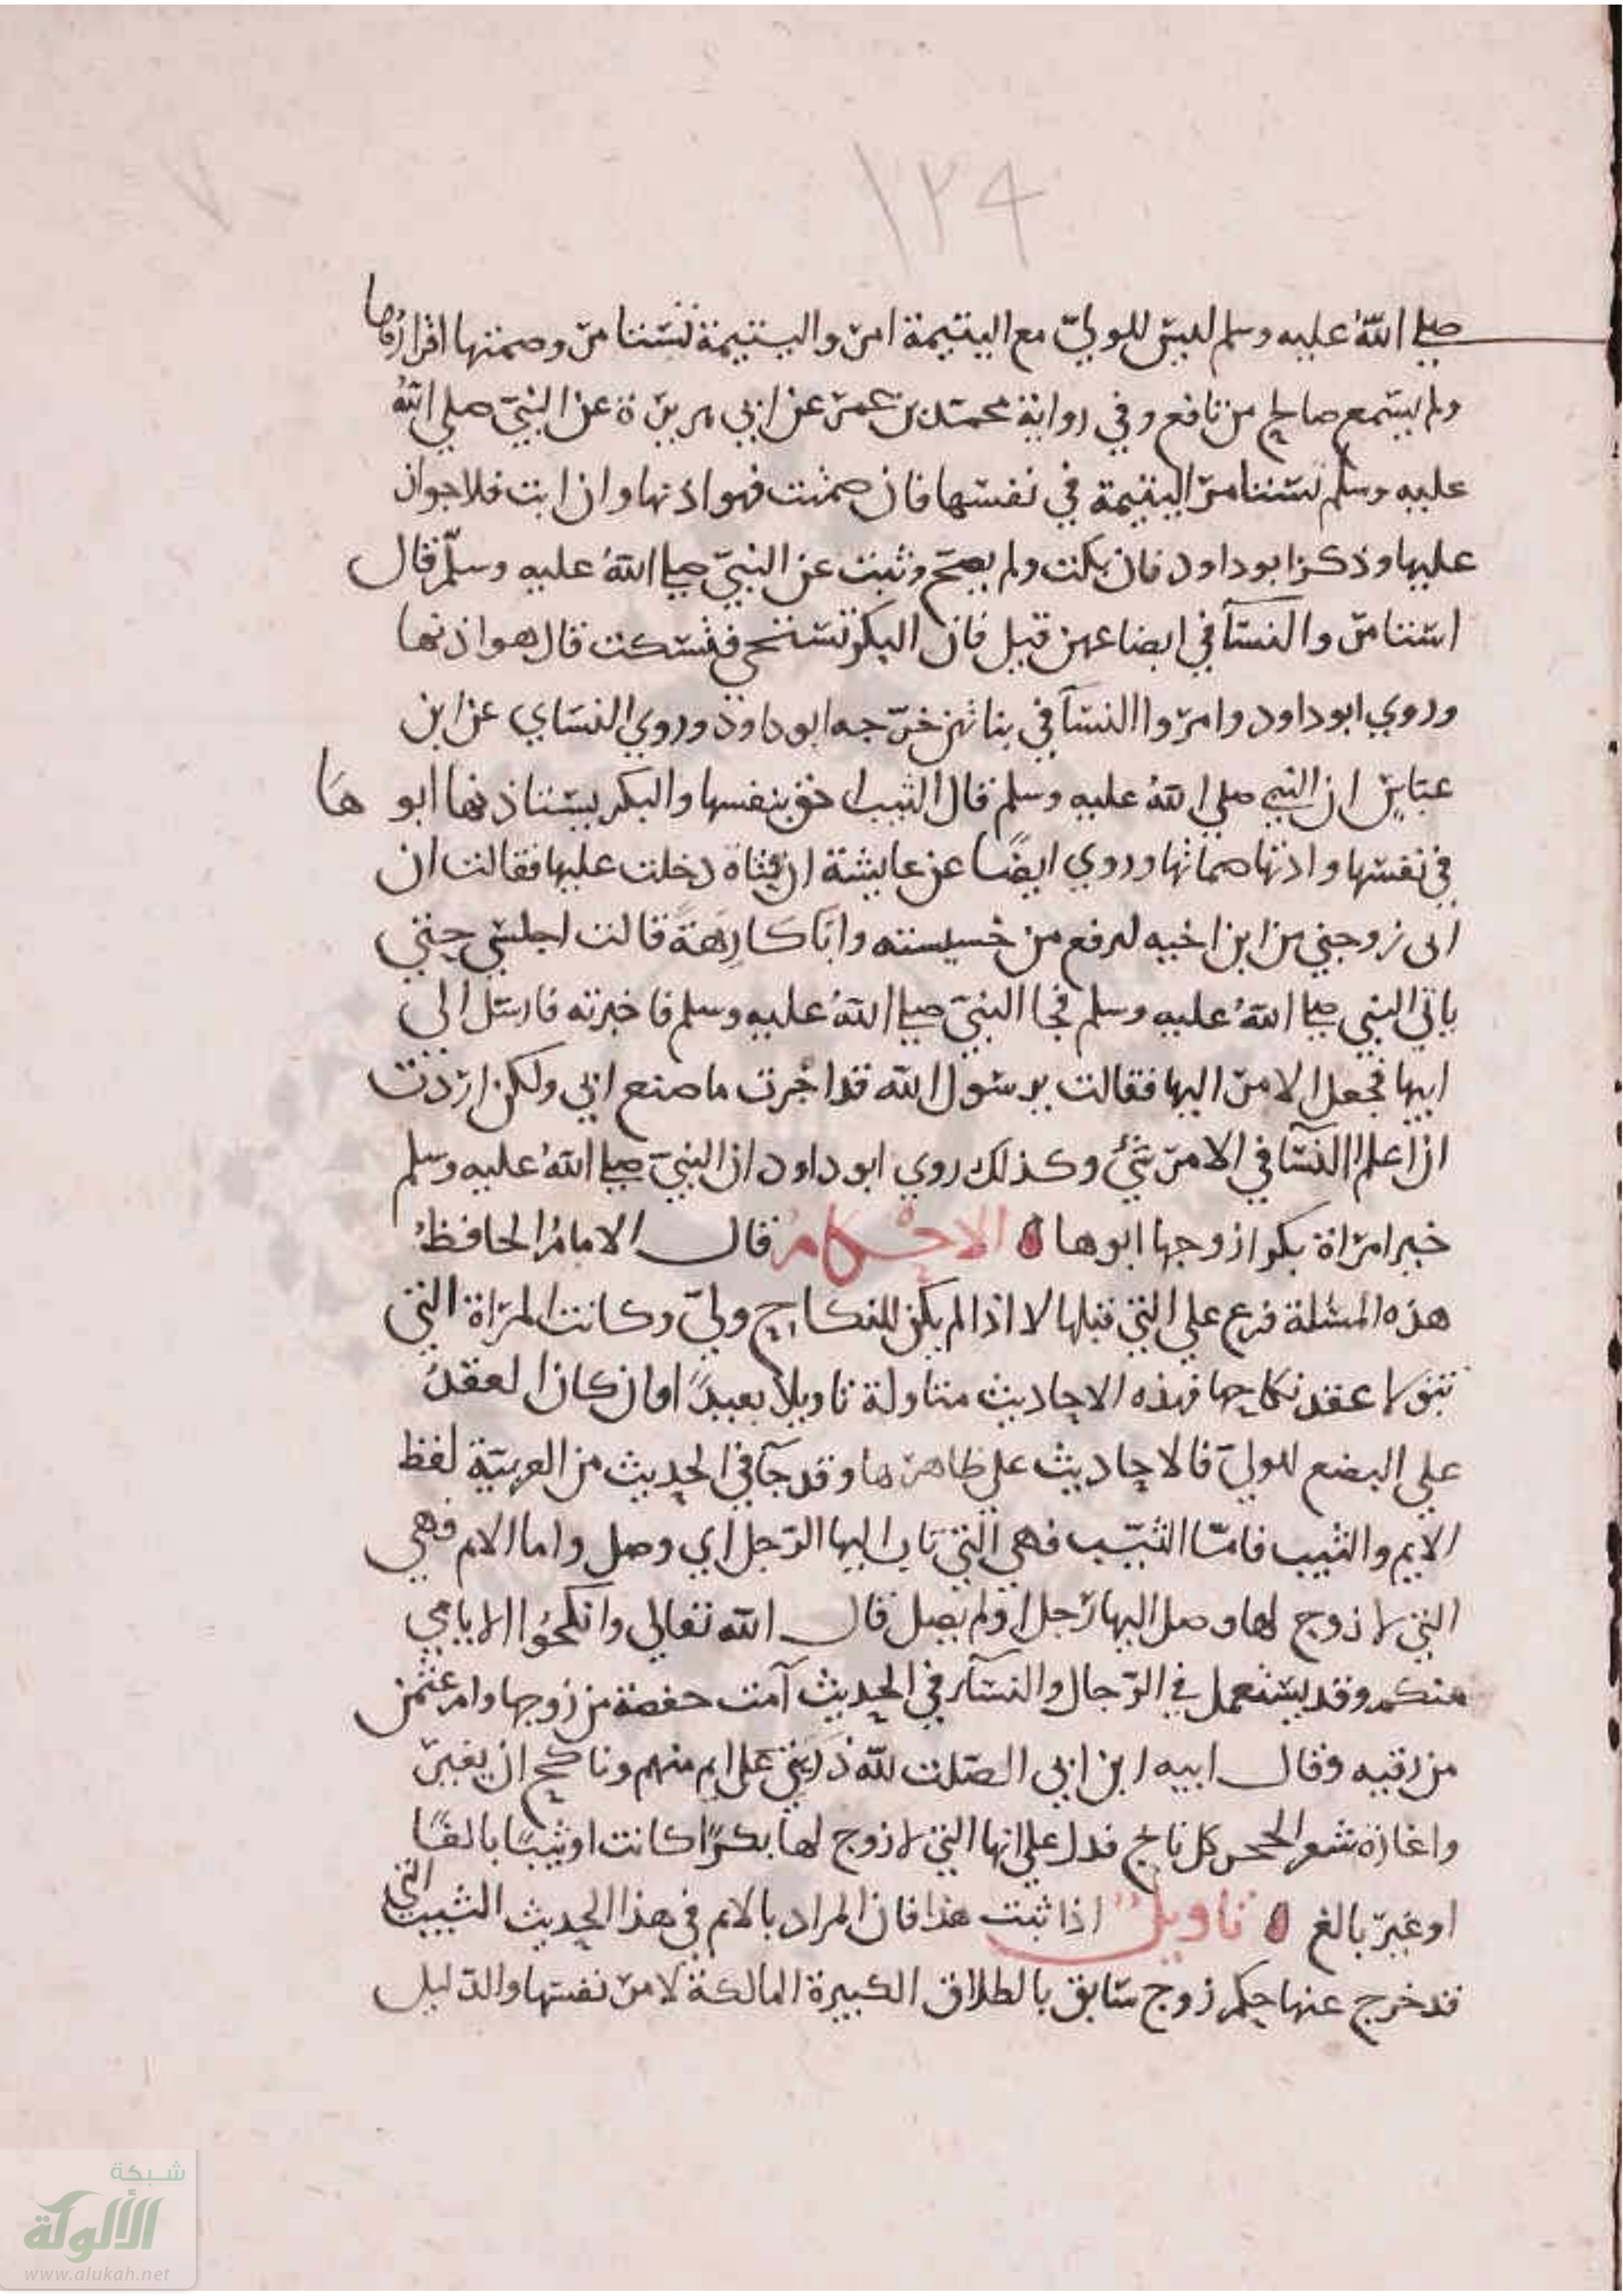 ١٢٤
٧٠
صلى الله عليه وسلم ليس للولي مع اليتيمة امر واليتيمة تستامر وصمتها اقرارها
ولم يسمع صالح من نافع وفي رواية محمد بن عمر عن ابي هريرة عن النبي صلي الله
عليه وسلم تستامر اليتيمة في نفسها فان صمتت فهو اذنها وان ابت فلا جواز
عليها وذكر ابو داود فان بكت ولم يصح وثبت عن النبي صلى الله عليه وسلم قال
استامروا النسآ في ابضاعهن قيل فان البكر تستحي فتسكت قال هو اذنها
وروي ابو داود وامروا النسآ في بناتهن خرجه ابو داود وروي النساي عن ابن
عباس ان النبي صلي الله عليه وسلم قال الثيب احق بنفسها والبكر يستاذنها ابو ها
في نفسها واذنها صماتها وروي ايضا عن عايشة ان فتاة دخلت عليها فقالت ان
ابى زوجني من ابن اخيه ليرفع من خسيسته وانا كارهة قالت اجلسي حتي
ياتي النبي صلى الله عليه وسلم فجا النبي صلى الله عليه وسلم فاخبرته فارسل الى
ابيها فجعل الامر اليها فقالت يرسول الله قد اجرت ما صنع ابي ولكن اردت
ان اعلم اللنسآ في الامر شئ وكذلك روي ابو داود ان النبي صلى الله عليه وسلم
خير امراة بكرا زوجها ابوها ه الاحكام قال الامام الحافظ
هذه المسئلة فرع علي التي قبلها لا اذا لم يكن للنكاح ولي وكانت المراة التي
تتولا عقد نكاحها فهذه الاحاديث متاولة تاويلا بعيدا وان كان العقد
علي البضع للولي فالاحاديث علي ظاهرها وقد جآ في الحديث من العربية لفظ
الايم والثيب فاما الثيب فهي التي تاب اليها الرجل اي وصل واما الايم فهي
التي لا زوج لها وصل اليها رجل او لم يصل قال الله تعالي وانكحوا الايامي
منكم وقد يستعمل في الرجال والنسآ في الحديث آمت حفصة من زوجها وام عثمن
من رقيه وقال اميه ابن ابي الصلت لله در بني علي ايم منهم وناكح ان يغير
واغارة شعو الححر كل نابح فدل علي انها التي لا زوج لها بكرا كانت او ثيبا بالغا
او غير بالغ ه تاويل اذا ثبت هذا فان المراد بالايم في هذا الحديث الثيب التي
قد خرج عنها حكم زوج سابق بالطلاق الكبيرة المالكة لامر نفسها والدليل
شبكة
الألوكة
www.alukah.net